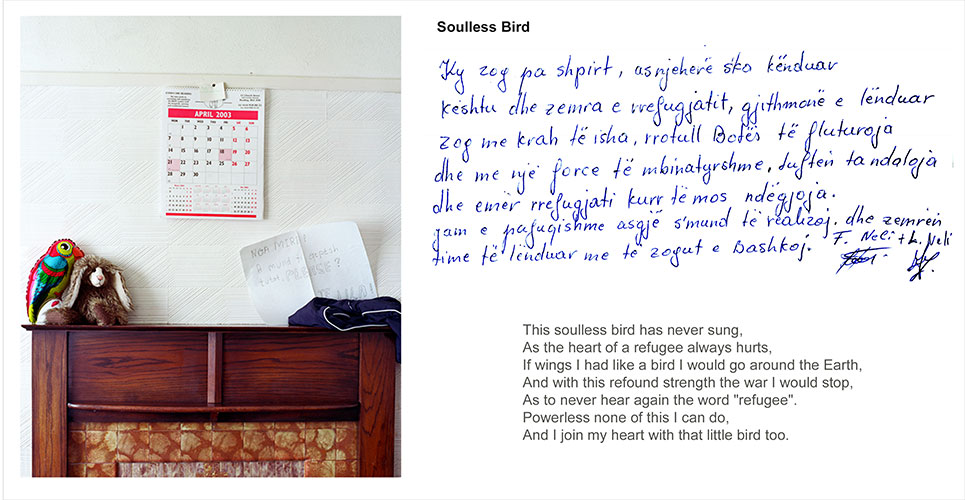 Soulless Bird
Ky zog pa shpirt, asnjeherë s'ka kënduar
kështu dhe zemra e rrefugjatit, gjithmonë e lënduar
zog me krah të isha, rrotull Botës të fluturoja
dhe me një force të mbinatyrshme, luftën ta ndaloja
dhe emër rrefugjati kurr të mos ndëgjoja.
jam e pafuqishme asgjë s'mund të realizoj. dhe zemrën
time të lënduar me të zogut e Bashkoj. F. Neli + L. Neli
This soulless bird has never sung,
As the heart of a refugee always hurts,
If wings I had like a bird I would go around the Earth,
And with this refound strength the war I would stop,
As to never hear again the word "refugee".
Powerless none of this I can do,
And I join my heart with that little bird too.
APRIL 2003
MON TUE WED THU FRI SAT SUN
1 2 3 4 5 6
7 8 9 10 11 12 13
14 15 16 17 18 19 20
21 22 23 24 25 26 27
28 29 30